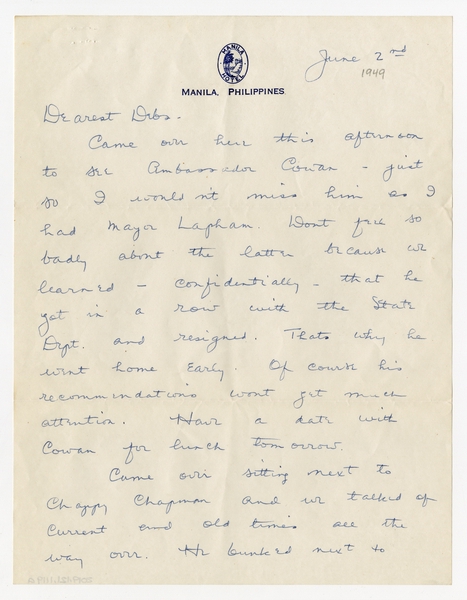 MANILA
HOTEL
MANILA, PHILIPPINES
June 2nd
1949
Dearest Dibs -
Came over here this afternoon
to see Ambassador Cowan - just
so I wouldn't miss him as I
had Mayor Lapham. Dont feel so
badly about the latter because we
learned - confidentially - that he
got in a row with the State
Dept. and resigned. Thats why he
went home early. Of course his
recommendations wont get much
attention. Have a date with
Cowan for lunch tomorrow.
Came over sitting next to
Chappy Chapman and we talked of
current and old times all the
way over. He bunked next to